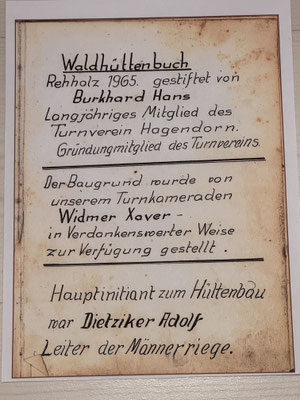 Waldhüttenbuch
Rehholz 1965. gestiftet von
Burkhard Hans
Langjöhriges Mitglied des
Turnverein Hagendorn.
Gründungmitglied des Turnvereins.
Der Baugrund wurde von
unserem Turnkameraden
Widmer Xaver -
in Verdankenswerter Weise
zur Verfügung gestellt.
Hauptinitiant zum Hüttenbau
war Dietziker Adolf
Leiter der Männerriege.